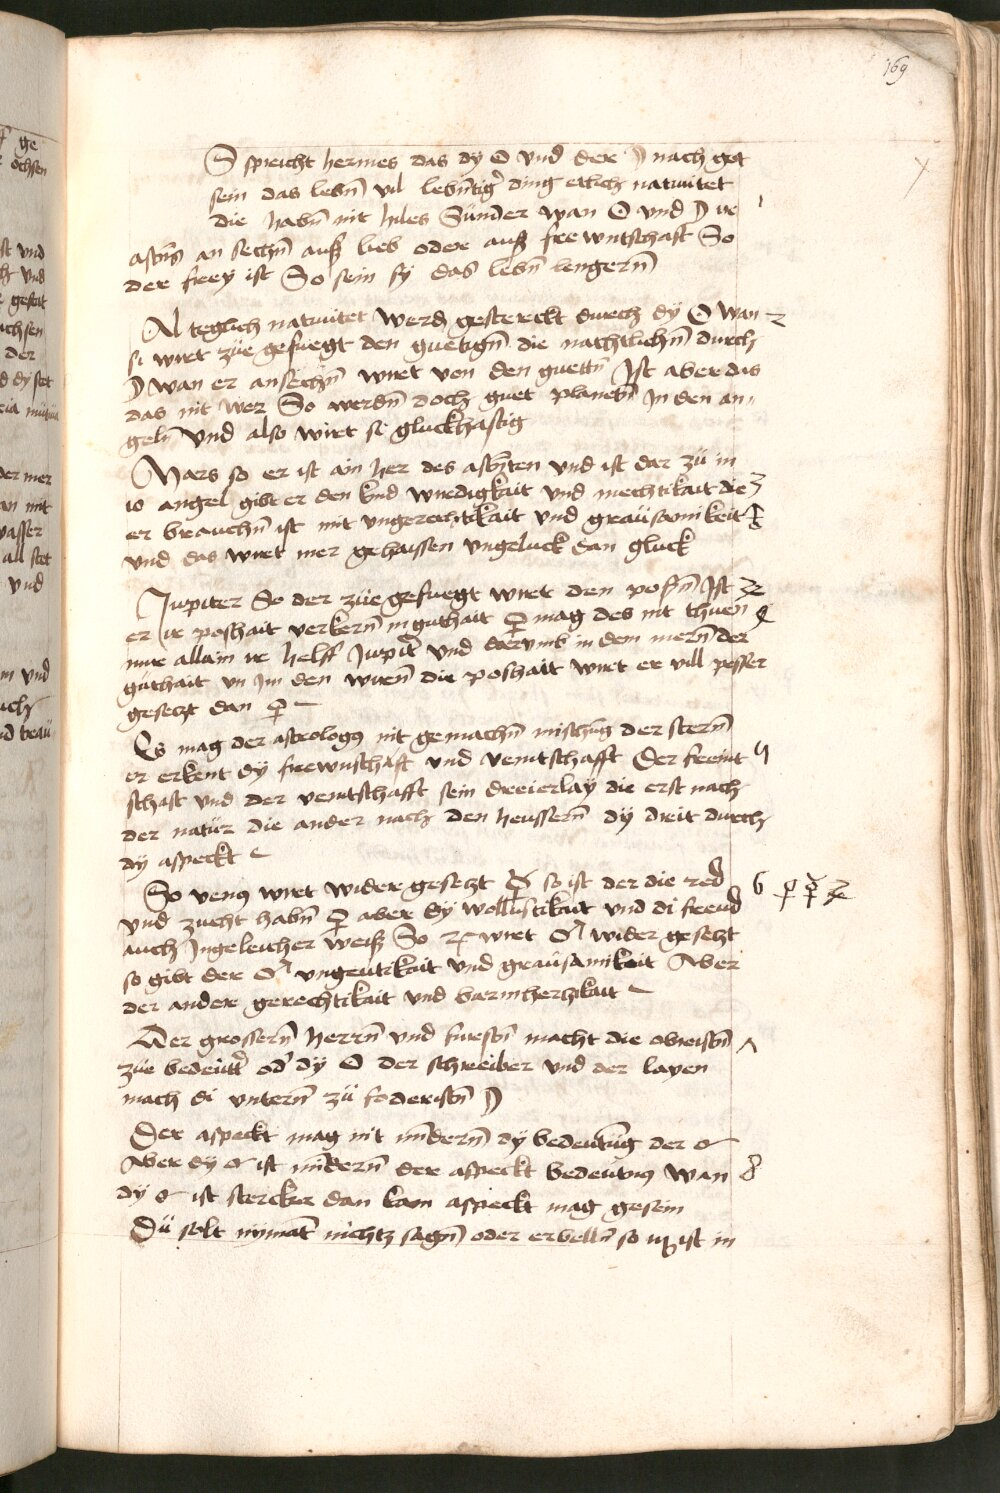 169
S spricht hermes das dy ☉ vnd der ☽ nach got
sein das lebñ vil lebñtiger ding etlich natiuitet
die habñ nit hiles Sümer wan ☉ vnd ☽ ir 1
an sechñ auß lieb oder auß frewntschaft So
der frey ist So sein sy das lebñ lengerñ
Al teglich natiuitet werd gesterckt durch dy ☉ wan 2
si wirt züe gefuegt den guetigñ die nachtlichñ durch
☽ wan er ansechñ wirt von den guettñ Ist aber das
das nit wer So werdñ doch guet planetñ In den an
gelñ vnd also wirt si gluckhaftig
Mars so er ist ain her des astzten vnd ist dar zü in
10 angel gibt er den kind wirdigkait vnd mechtikait die 3
er brauchñ ist mit vngerechtikait vnd graüsamikeit
vnd das wirt mer gehaissen vngeluck dan gluck
Jupiter So der züe gefuegt wirt den posñ Ist ♃
er ir poshait verkerñ in guthait ♀ mag des nit thuen
nur allain ir helff Jupiter vnd darumb in dem merñ der
guthait vn im den wirñ die poshait wirt er vill pesser
gesetzt dan ♀
Es mag der astrologus nit gemachñ mischūg der sternñ
er erkent dy frewnschaft vnd veintschafft Der freint 5
schaft vnd der veintschafft sein dreierlay die erst nach
der natür die ander nach den heussernñ dy drit durch
dy aspeckt
So venus wirt wider gesetzt ☿ so ist der die red 6 ♀ ☿ ♃
vnd zucht habñ ♀ aber dy wollustikait vnd di freud
auch Ingeleicher weiß So ♃ wirt ♂ wider gesetzt
so gibt der ♂ vngeutikait vnd graüsamikait Aber
der ander gerechtikait vnd barmhertzikait
Der grossernñ herrñ vnd furstñ macht die obristñ 7
züe bedeütt od dy ☉ der schreiber vnd der layen
mach di vnternñ zü foderistñ ☽
Der aspeckt mag nit mīdernñ dy bedeutūg der ☌
Aber dy ☌ ist mīdernñ der aspeckt bedeutūg wan 8
dy ☌ ist stercker dan kain aspeckt mag gesein
Dü solt nymāt nichtz sagñ oder erwellñ so ist in